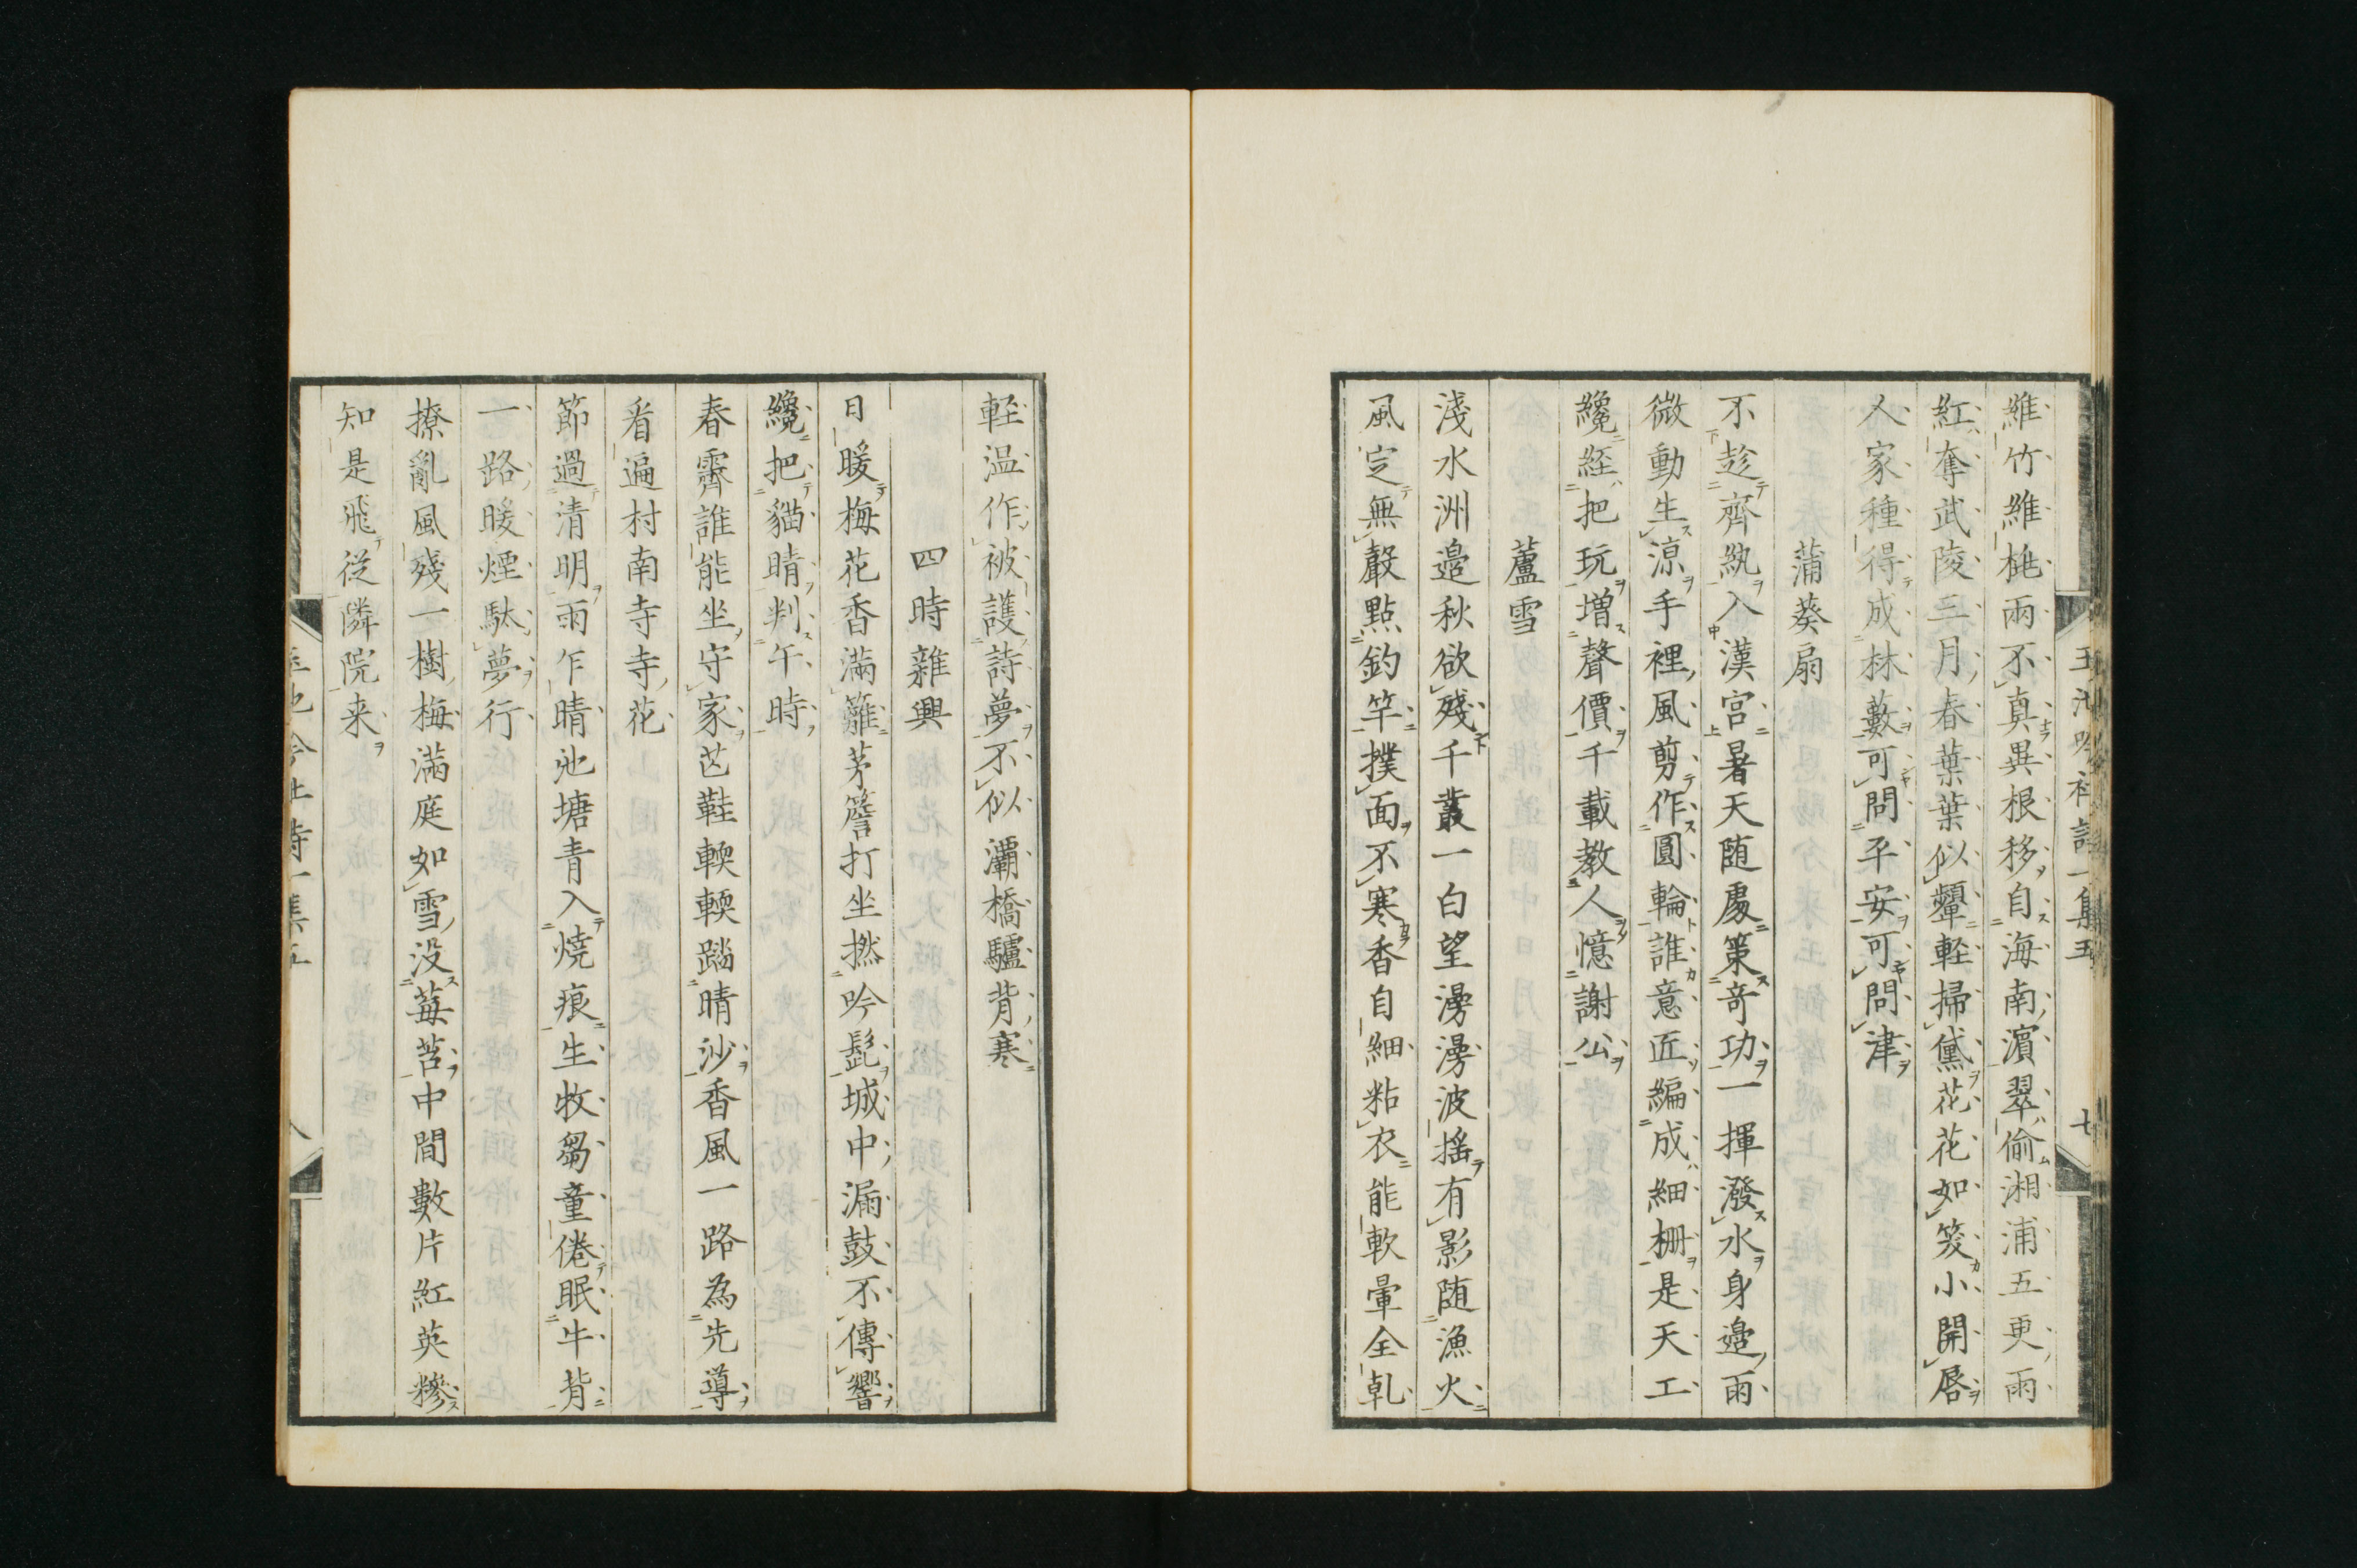 維竹維桃兩不真異根移自海南濵翠偷湘浦五更雨
紅奪武陵三月春葉葉似顰軽掃黛花花如笑小開唇
人家種得成林藪可問平安可問津
蒲葵扇
不趁齊紈入漢宮暑天随處策奇功一揮潑水身邉雨
微動生涼手裡風剪作圓輪誰意匠編成細柵是天工
纔経把玩増聲價千載教人憶謝公
蘆雪
淺水洲邉秋欲殘千叢一白望漫漫波揺有影随漁火
風定無聲點釣竿撲面不寒香自細粘衣能軟暈全乹
軽温作被護詩夢不似灞橋驢背寒
四時雜興
日暖梅花香滿籬茅簷打坐撚吟髭城中漏鼓不傳響
纔把貓晴判午時
春霽誰能坐守家芒鞋輭輭蹈晴沙香風一路為先導
看遍村南寺寺花
節過清明雨乍晴池塘青入燒痕生牧芻童倦眠牛背
一路暖煙駄夢行
撩亂風殘一樹梅滿庭如雪没莓苔中間數片紅英糝
知是飛従隣院来